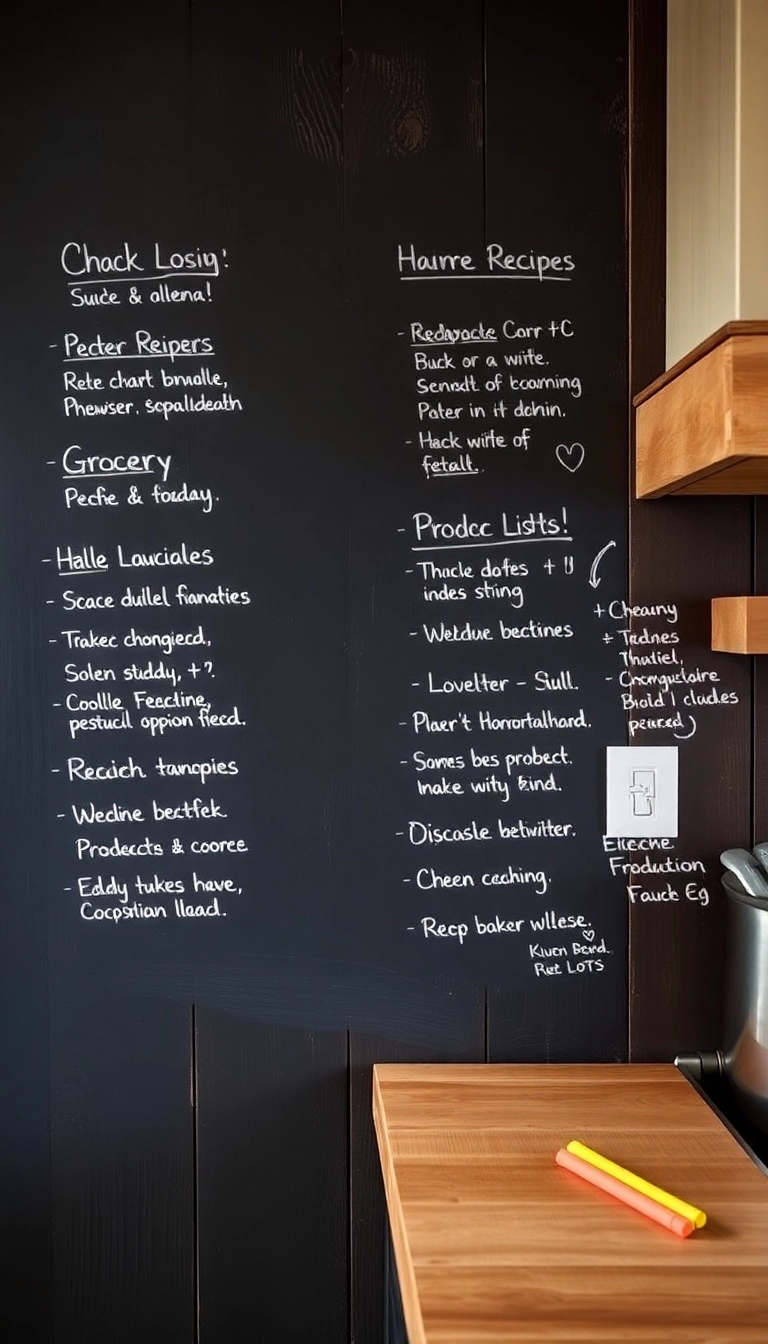 Chack Losiy!
Suide & allena!
- Pecter Reipers
Rete chart bmalle,
Phewser, scpalldeath
- Grocery
Pecfie & fouday.
- Halle Lauciales
- Scace dullel fianaties
- Trakec chongiecd,
Solen studdy, + ?.
- Coollle Feectine,
pestucil oppion fiecd.
- Recich tanopies
- Wecline bectfek
Prodects & cooree
- Eddy tukes have,
Cocpstian llead.
Haurre Recipes
- Redayocte Carr + C
Buck or a wifte.
Senndt of tcoaming
Pater in it dchin.
- Hack wifte of
fetalt.
- Prodcc Lishts!
- Thucle dofes + ll
indes sting
- Weldue bectines
- Lovelter - Siull.
- Plaer't Horrortalhard.
- Somes bes probect.
Inake wity kind.
- Discasle betwitter.
- Cheen caching.
- Recp baker wllese.
Kiucn Bend.
Ret LOTS
+ Cheauny
+ Tadnes
Thutiel,
- Cnomguelaire
Biold I cludes
peured
Eliecne
Frodution
Fauck Eg